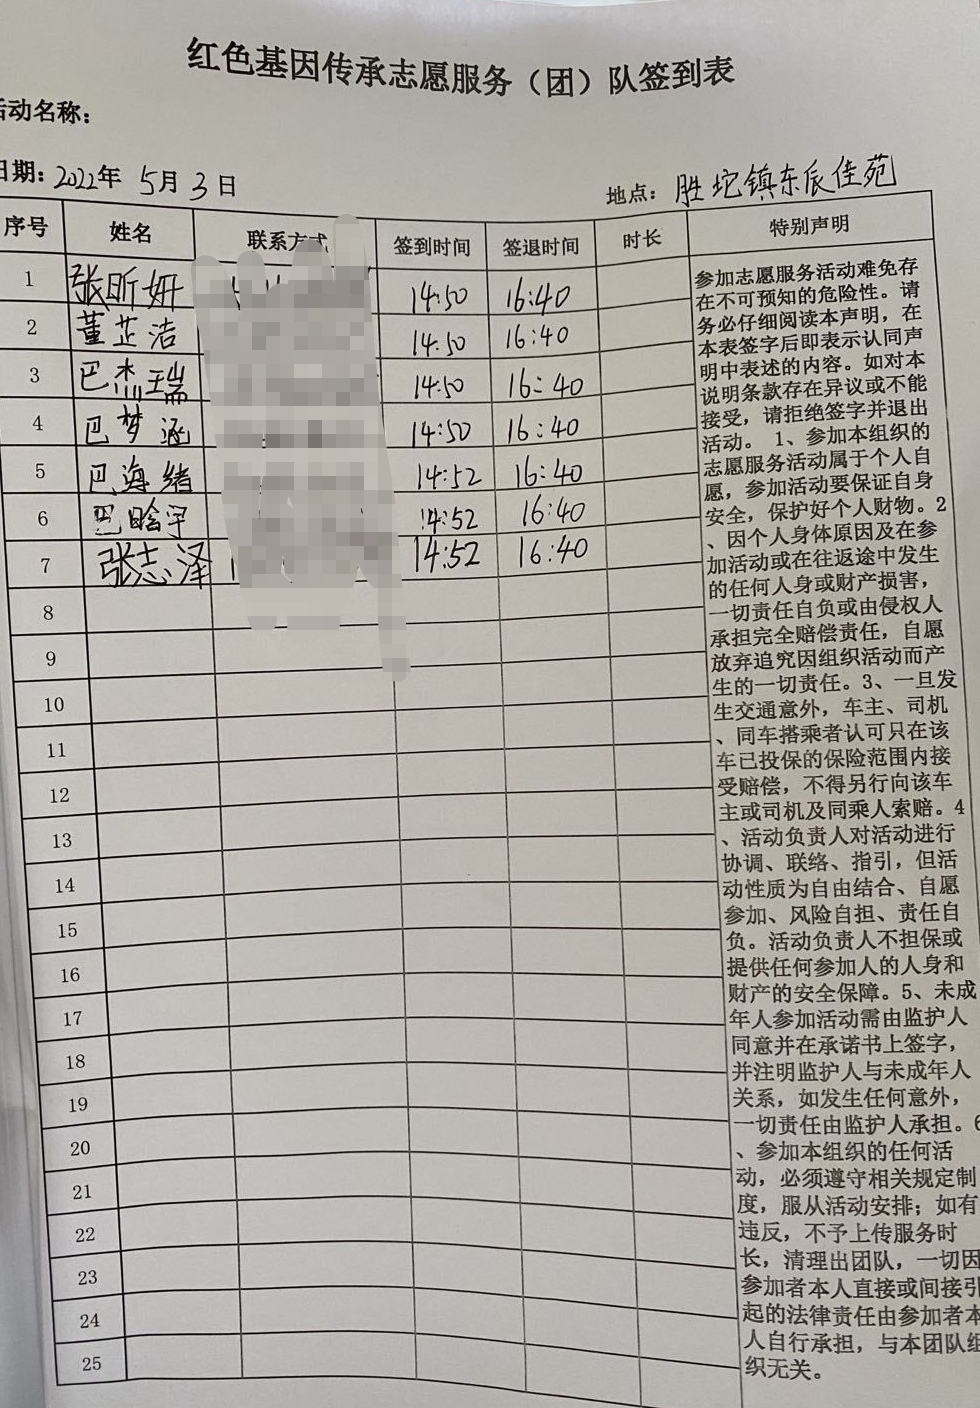 红色基因传承志愿服务（团）队签到表
活动名称：
日期：2022年 5月 3日
地点：胜坨镇东辰佳苑
序号 姓名 联系方式 签到时间 签退时间 时长 特别声明
1 张昕妍 14:50 16:40
2 董芷洁 14:50 16:40
3 巴杰瑞 14:50 16:40
4 巴梦涵 14:50 16:40
5 巴海绪 14:52 16:40
6 巴晗宇 14:52 16:40
7 张志泽 14:52 16:40
8
9
10
11
12
13
14
15
16
17
18
19
20
21
22
23
24
25
参加志愿服务活动难免存
在不可预知的危险性。请
务必仔细阅读本声明，在
本表签字后即表示认同声
明中表述的内容。如对本
说明条款存在异议或不能
接受，请拒绝签字并退出
活动。1、参加本组织的
志愿服务活动属于个人自
愿，参加活动要保证自身
安全，保护好个人财物。2
、因个人身体原因及在参
加活动或在往返途中发生
的任何人身或财产损害，
一切责任自负或由侵权人
承担完全赔偿责任，自愿
放弃追究因组织活动而产
生的一切责任。3、一旦发
生交通意外，车主、司机
、同车搭乘者认可只在该
车已投保的保险范围内接
受赔偿，不得另行向该车
主或司机及同乘人索赔。4
、活动负责人对活动进行
协调、联络、指引，但活
动性质为自由结合、自愿
参加、风险自担、责任自
负。活动负责人不担保或
提供任何参加人的人身和
财产的安全保障。5、未成
年人参加活动需由监护人
同意并在承诺书上签字，
并注明监护人与未成年人
关系，如发生任何意外，
一切责任由监护人承担。6
、参加本组织的任何活
动，必须遵守相关规定制
度，服从活动安排；如有
违反，不予上传服务时
长，清理出团队，一切因
参加者本人直接或间接引
起的法律责任由参加者本
人自行承担，与本团队组
织无关。